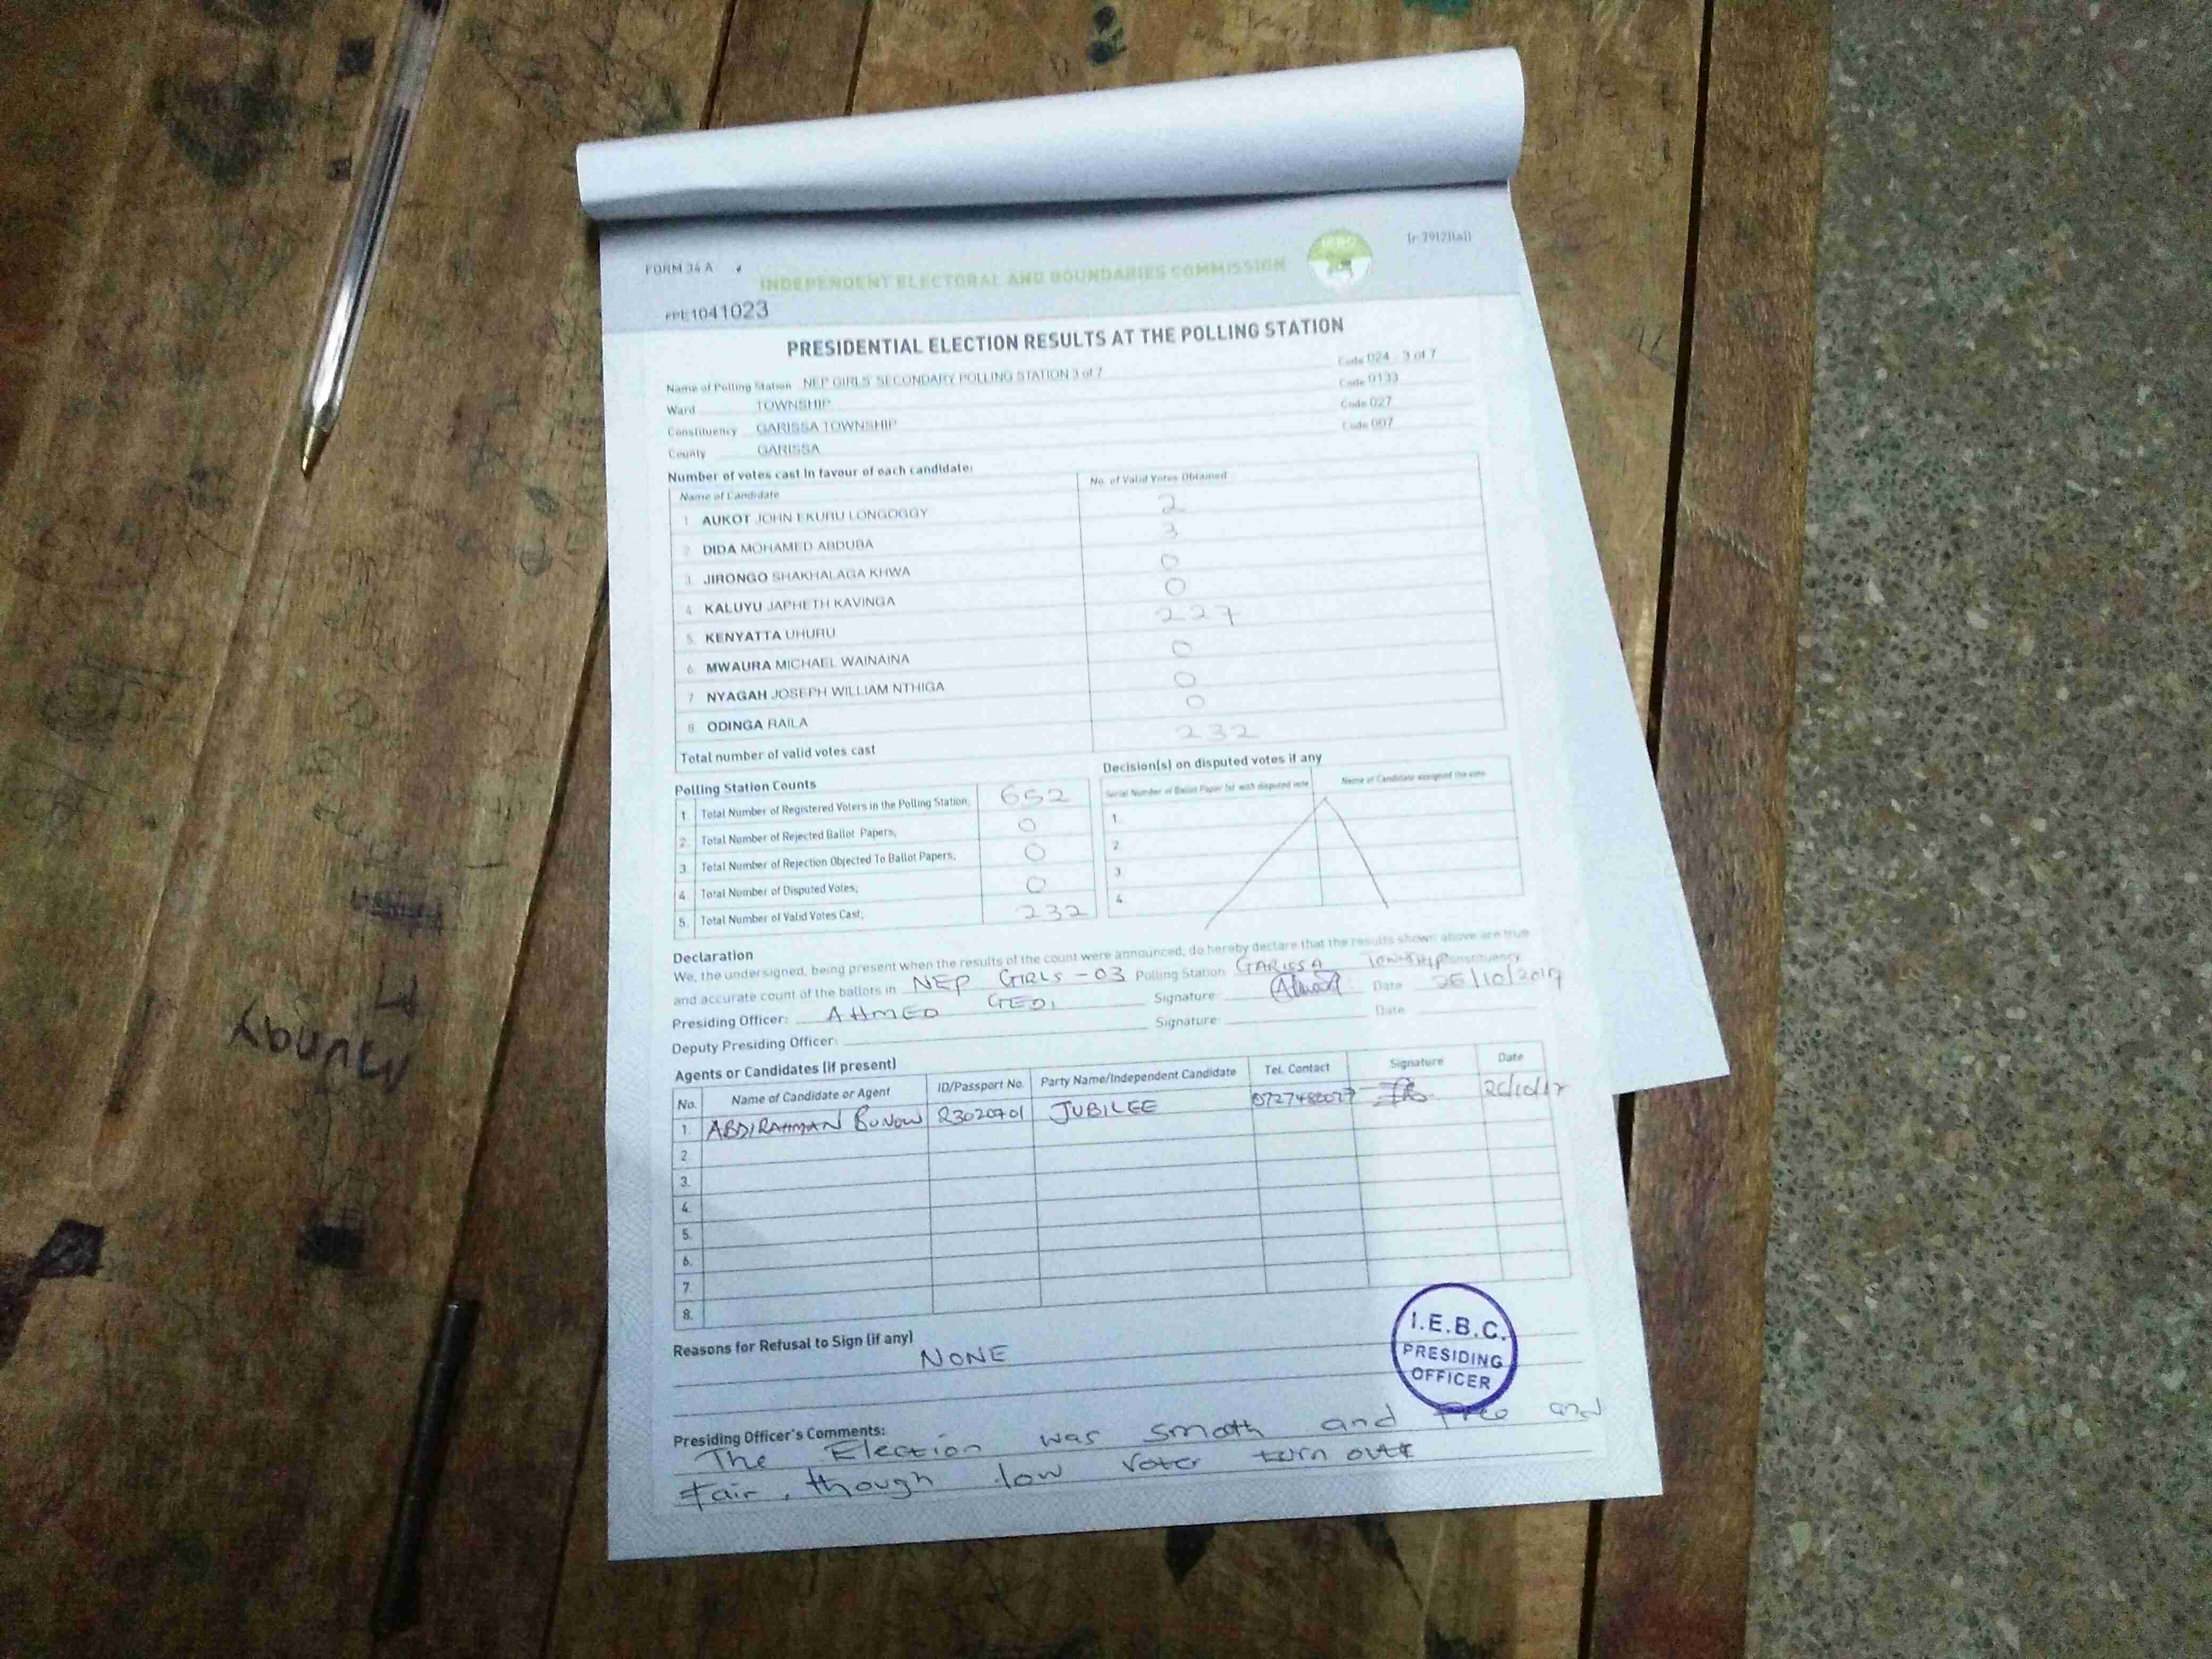 FORM 34 A
INDEPENDENT ELECTORAL AND BOUNDARIES COMMISSION
1041023
PRESIDENTIAL ELECTION RESULTS AT THE POLLING STATION
Name of Polling Station NEP GIRLS' SECONDARY POLLING STATION 3 of 7 Code 024 3 of 7
Ward TOWNSHIP Code 0133
Constituency GARISSA TOWNSHIP Code 027
County GARISSA Code 007
Number of votes cast in favour of each candidate:
Name of Candidate No. of Valid Votes Obtained
1. AUKOT JOHN EKURU LONGOGGY 2
2. DIDA MOHAMED ABDUBA 3
3. JIRONGO SHAKHALAGA KHWA 0
4. KALUYU JAPHETH KAVINGA 0
5. KENYATTA UHURU 227
6. MWAURA MICHAEL WAINAINA 0
7. NYAGAH JOSEPH WILLIAM NTHIGA 0
8. ODINGA RAILA 0
Total number of valid votes cast 232
Polling Station Counts
1. Total Number of Registered Voters in the Polling Station; 652
2. Total Number of Rejected Ballot Papers; 0
3. Total Number of Rejection Objected To Ballot Papers; 0
4. Total Number of Disputed Votes; 0
5. Total Number of Valid Votes Cast; 232
Decision(s) on disputed votes if any
Serial Number of Ballot Paper (s) with disputed vote Name of Candidate assigned the vote
1.
2.
3.
4.
Declaration
We, the undersigned, being present when the results of the count were announced, do hereby declare that the results shown above are true
and accurate count of the ballots in NEP GIRLS - 03 Polling Station GARISSA Township Constituency
Presiding Officer: AHMED GEDI Signature: Date 26/10/2017
Deputy Presiding Officer: Signature: Date
Agents or Candidates (if present)
No. Name of Candidate or Agent ID/Passport No. Party Name/Independent Candidate Tel. Contact Signature Date
1. ABDIRAHMAN BUNOW 23020701 JUBILEE 26/10/17
2.
3.
4.
5.
6.
7.
8.
Reasons for Refusal to Sign (if any)
NONE
I.E.B.C.
PRESIDING
OFFICER
Presiding Officer's Comments:
The Election was smoth and free and
fair, though low voter turn out